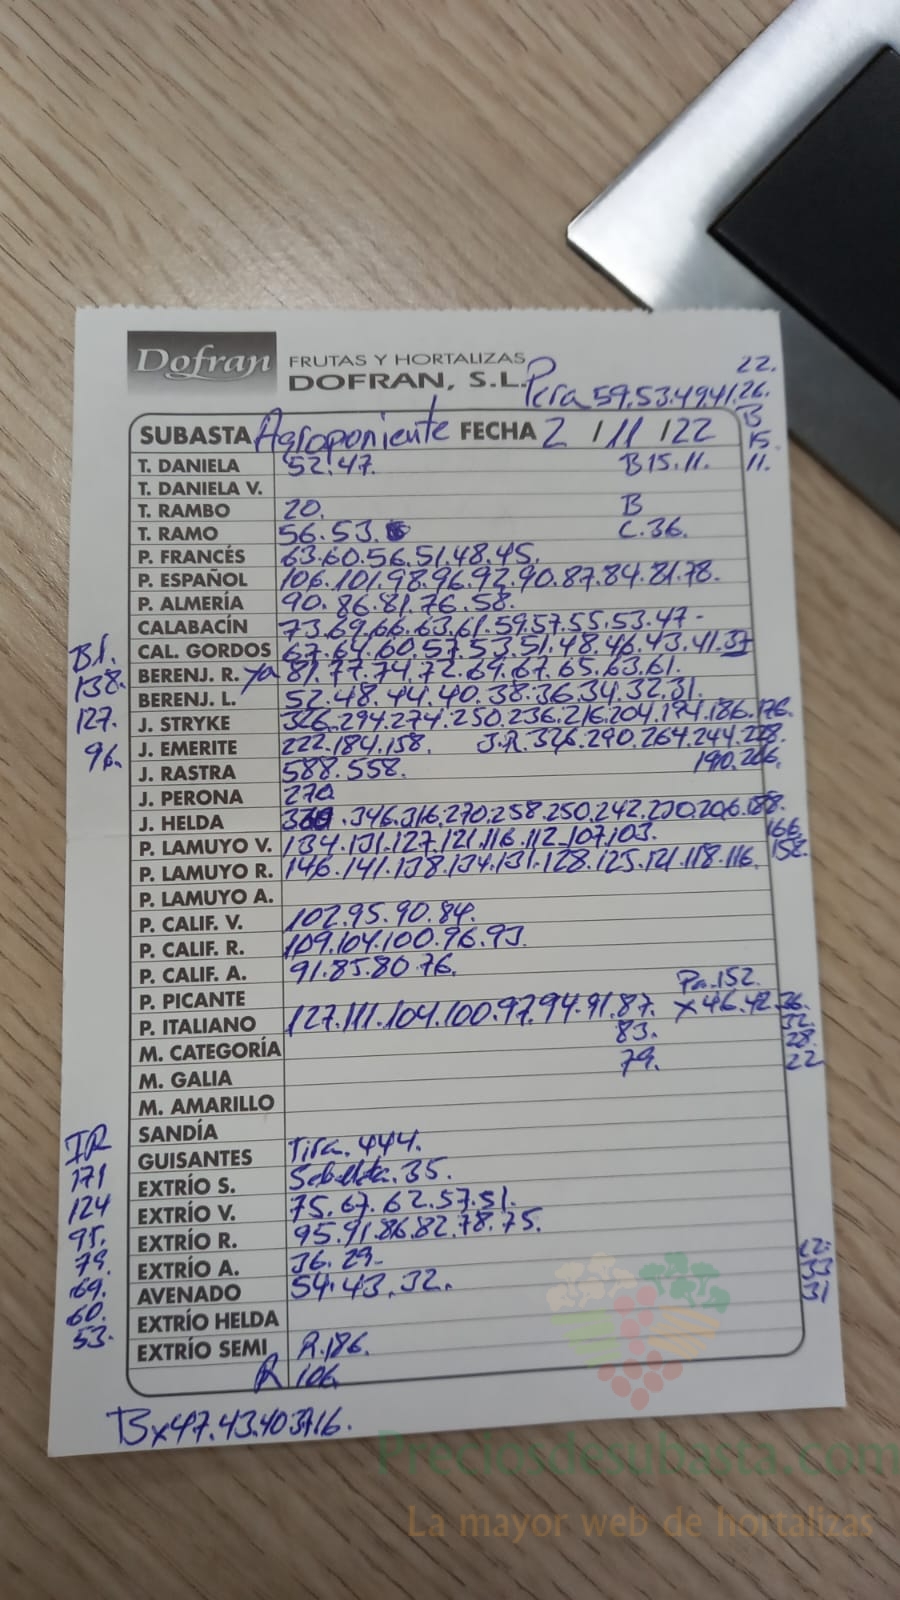 Dofran FRUTAS Y HORTALIZAS
DOFRAN, S.L.
Pera 59.53.49.41.26.
22.
SUBASTA Agroponiente FECHA 2 / 11 / 22
B
15.
11.
T. DANIELA 52.47. B 15.11.
T. DANIELA V.
T. RAMBO 20. B
T. RAMO 56.53. C.36.
P. FRANCÉS 63.60.56.51.48.45.
P. ESPAÑOL 106.101.98.96.92.90.87.84.81.78.
P. ALMERÍA 90.86.81.76.58.
CALABACÍN 73.69.66.63.61.59.57.55.53.47-
CAL. GORDOS 67.64.60.57.53.51.48.46.43.41.37
BERENJ. R. ya 81.77.74.72.69.67.65.63.61.
BERENJ. L. 52.48.44.40.38.36.34.32.31.
Bl.
138.
127.
96.
J. STRYKE 326.294.274.250.236.216.204.194.186.176.
J. EMERITE 222.184.158. J.R.326.290.264.244.228.
190.206.
J. RASTRA 588.558.
J. PERONA 270
J. HELDA .346.316.270.258.250.242.230.206.188.
166.
158.
P. LAMUYO V. 134.131.127.121.116.112.107.103.
P. LAMUYO R. 146.141.138.134.131.128.125.121.118.116.
P. LAMUYO A.
P. CALIF. V. 102.95.90.84.
P. CALIF. R. 109.104.100.96.93.
P. CALIF. A. 91.85.80.76.
P. PICANTE Pa.152.
P. ITALIANO 127.111.104.100.97.94.91.87. x46.42.36.
83.
79.
32.
28.
22
M. CATEGORÍA
M. GALIA
M. AMARILLO
SANDÍA
GUISANTES Tira.444.
EXTRÍO S. 35.
EXTRÍO V. 75.67.62.57.51.
EXTRÍO R. 95.91.86.82.78.75.
EXTRÍO A. 36.29-
AVENADO 54.43.32.
EXTRÍO HELDA
EXTRÍO SEMI R.186.
R 106
171
124
95.
79.
69.
60.
53.
33
31
Bx47.43.40.37.16.
Preciosdesubasta.com
La mayor web de hortalizas